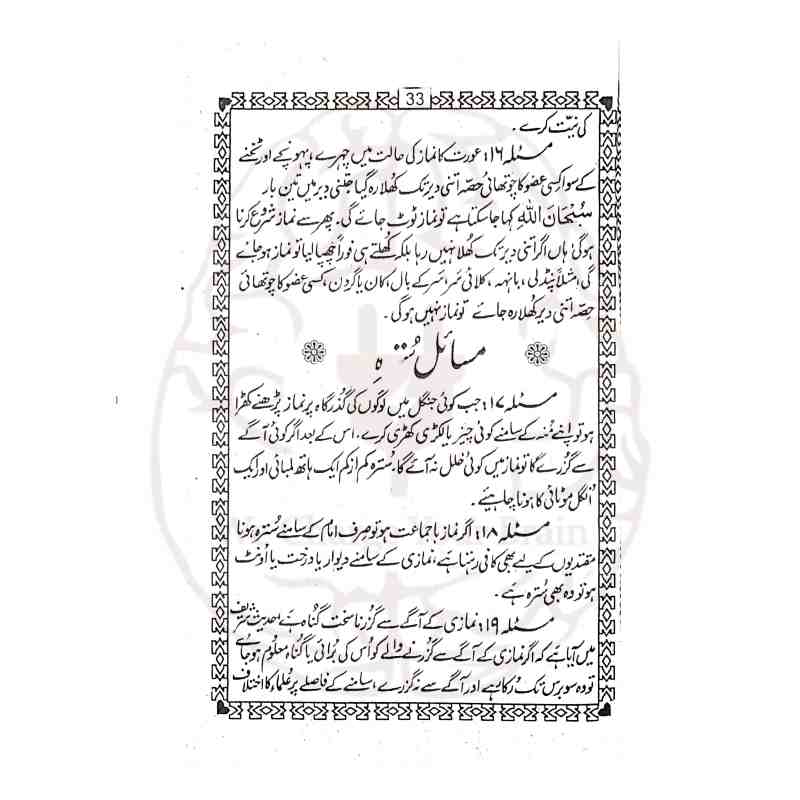 33
کی نیت کرے ۔
مسئلہ ۱۶: عورت کا نماز کی حالت میں چہرے ، پہونچے اور ٹخنے
کے سوا کسی عضو کا چوتھائی حصّہ اتنی دیر تک کھلا رہ گیا جتنی دیر میں تین بار
سُبْحَانَ اللّٰہِ کہا جا سکتا ہے تو نماز ٹوٹ جائے گی۔ پھر سے نماز شروع کرنا
ہوگی؛ ہاں اگر اتنی دیر تک کھلا نہیں رہا بلکہ کھلتے ہی فوراً چھپا لیا تو نماز ہو جائے
گی؛ مثلاً پنڈلی ، بانہہ ، کلائی سَر، سر کے بال، کان یا گردن، کسی عضو کا چوتھائی
حصّہ اتنی دیر کھلا رہ جائے تو نماز نہیں ہوگی ۔
مسائل سُترہ
مسئلہ ۱۷: جب کوئی جنگل میں لوگوں کی گذرگاہ پر نماز پڑھنے کھڑا
ہو تو اپنے مُنہ کے سامنے کوئی چیز یا لکڑی کھڑی کرے۔ اس کے بعد اگر کوئی آگے
سے گزرے گا تو نماز میں کوئی خلل نہ آئے گا۔ سُترہ کم از کم ایک ہاتھ لمبائی اور ایک
اُنگل موٹائی کا ہونا چاہیئے ۔
مسئلہ ۱۸: اگر نماز با جماعت ہو تو صرف امام کے سامنے سُترہ ہونا
مقتدیوں کے لیے بھی کافی رہتا ہے، نمازی کے سامنے دیوار یا درخت یا اُونٹ
ہو تو وہ بھی سُترہ ہے ۔
مسئلہ ۱۹: نمازی کے آگے سے گزرنا سخت گناہ ہے؛ حدیث شریف
میں آیا ہے کہ اگر نمازی کے آگے سے گزرنے والے کو اُس کی بُرائی یا گناہ معلوم ہو جائے
تو وہ سو برس تک رُکا رہے اور آگے سے نہ گزرے ، سامنے کے فاصلے پر عُلماء کا اختلاف